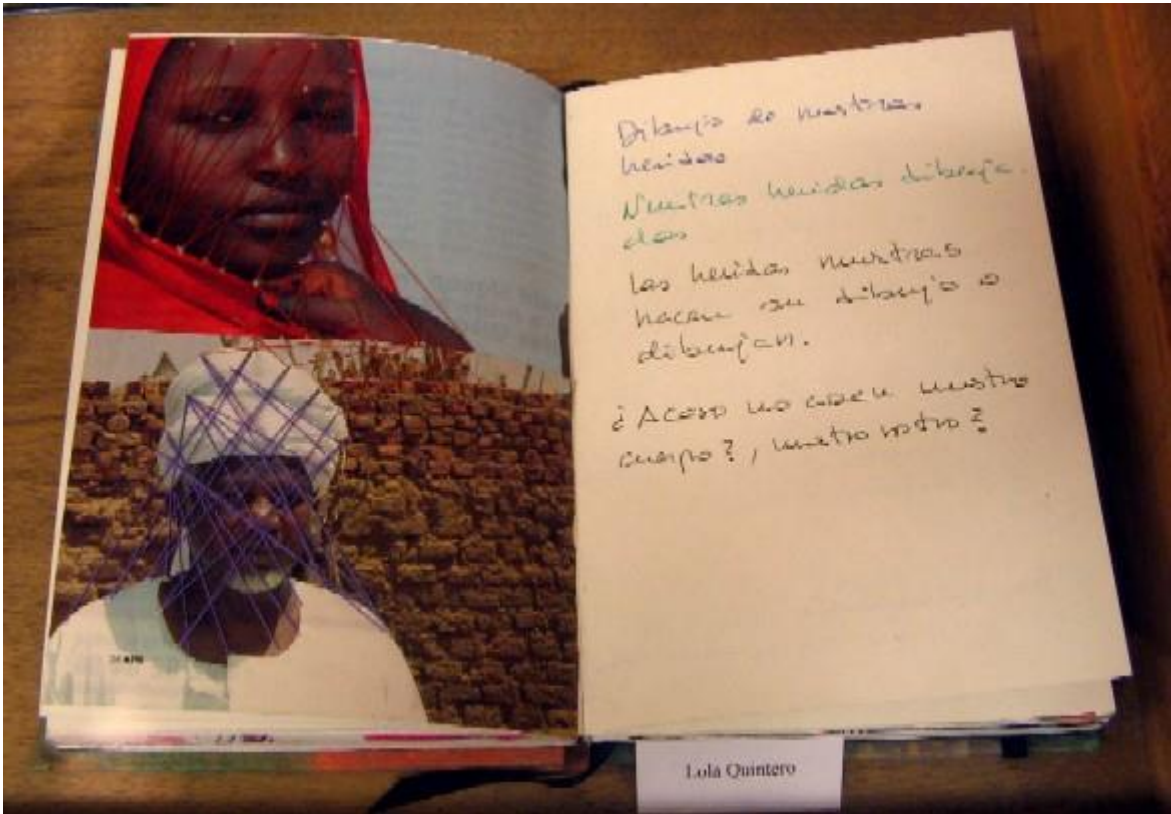 Dibujo de nuestras
heridas
Nuestras heridas dibuja.
das
Las heridas nuestras
hacen su dibujo o
dibujan.
¿Acaso no cosen nuestro
cuerpo?, nuestro rostro?
Lola Quintero